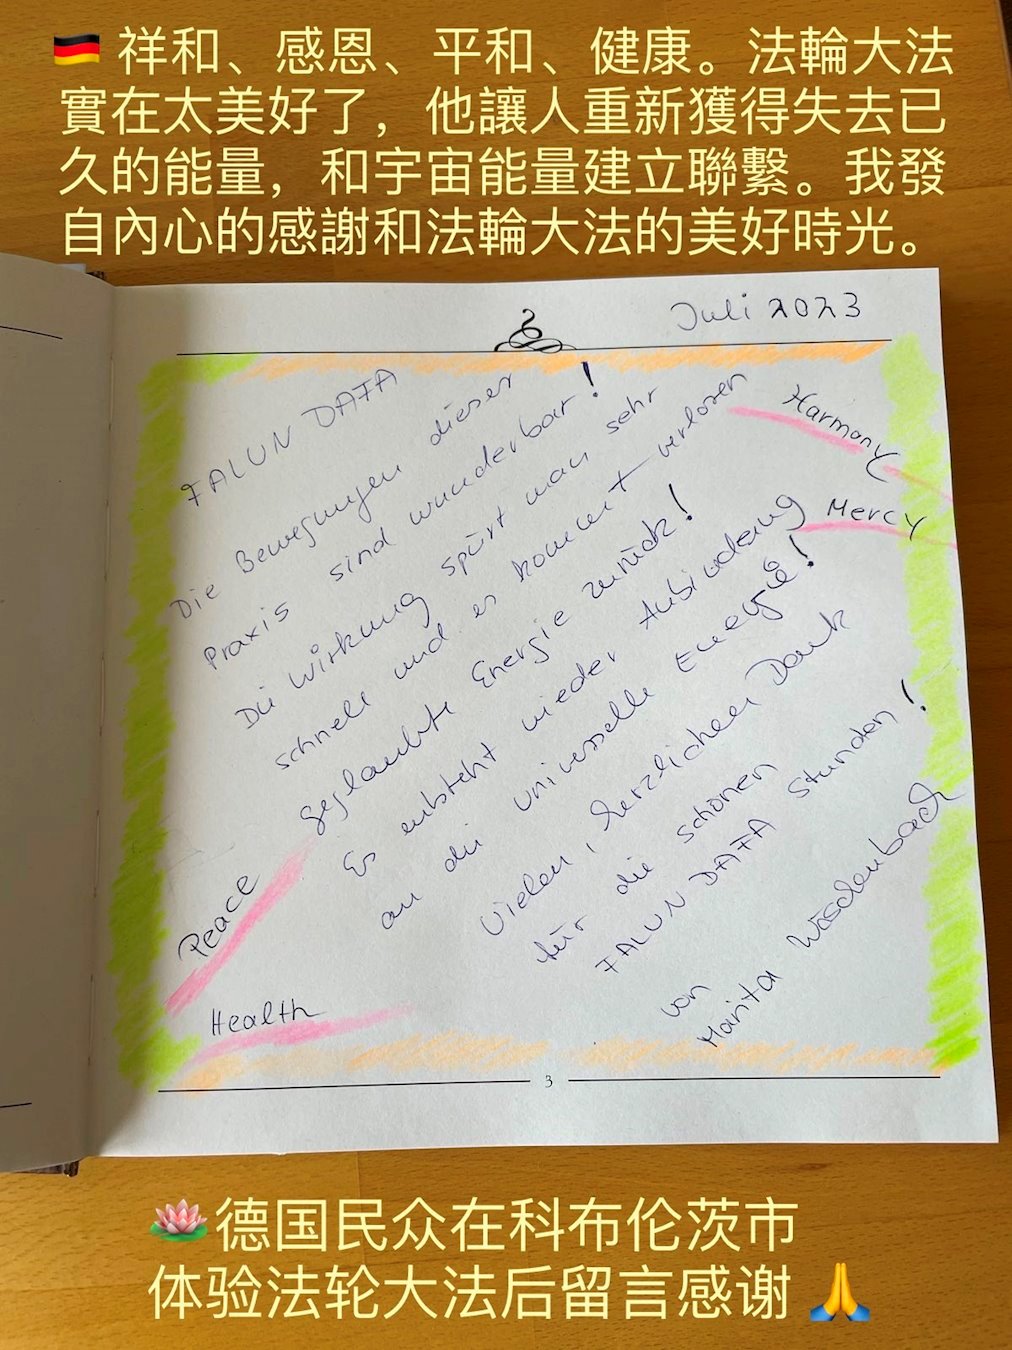 🇩🇪 祥和、感恩、平和、健康。法輪大法
實在太美好了，他讓人重新獲得失去已
久的能量，和宇宙能量建立聯繫。我發
自內心的感謝和法輪大法的美好時光。
Juli 2023
FALUN DAFA
Die Bewegungen dieser
Praxis sind wunderbar!
Die Wirkung spürt man sehr
schnell und es kommt verloren
geglaubte Energie zurück!
Es entsteht wieder Anbindung
an die universelle Energie!
Vielen, herzlichen Dank
für die schönen
FALUN DAFA Stunden!
von
Marita
Harmony
Mercy
Peace
Health
3
🪷德国民众在科布伦茨市
体验法轮大法后留言感谢🙏